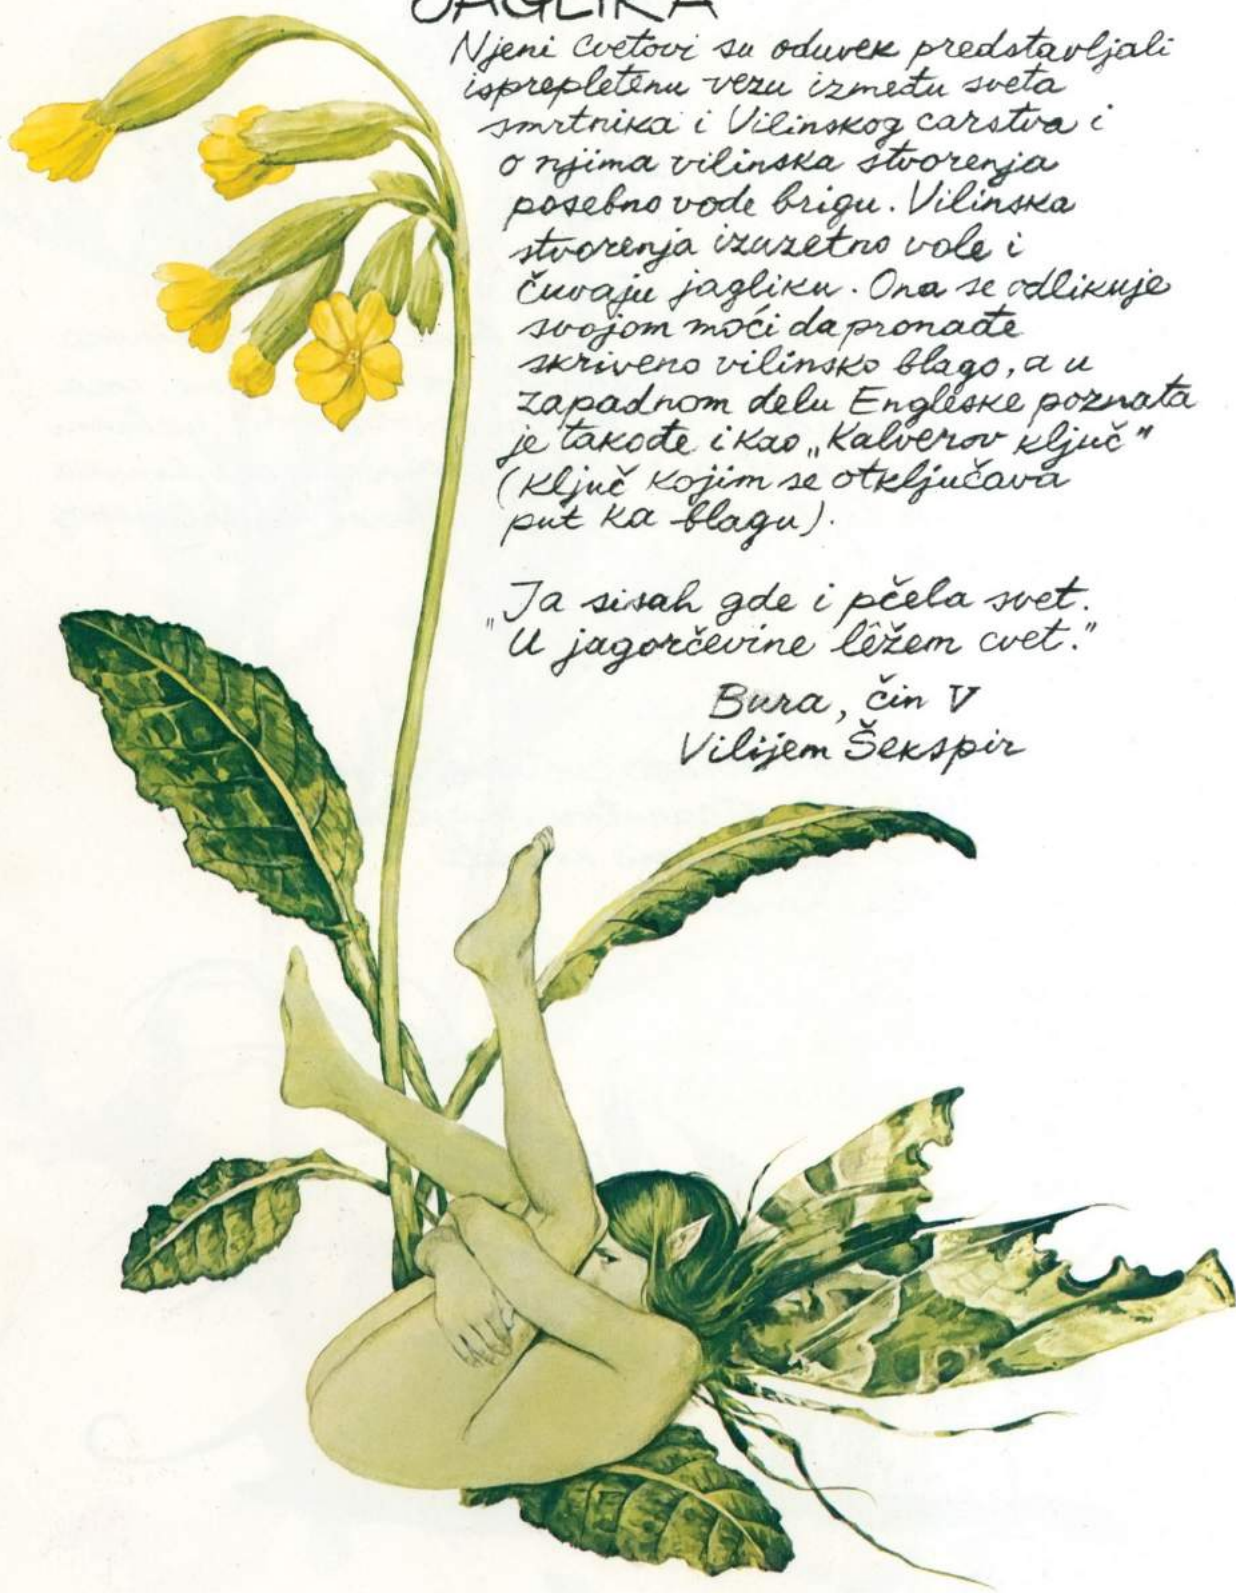 JAGLIKA
Njeni cvetovi su oduvek predstavljali
isprepletenu vezu između sveta
smrtnika i Vilinskog carstva i
o njima vilinska stvorenja
posebno vode brigu. Vilinska
stvorenja izuzetno vole i
čuvaju jagliku. Ona se odlikuje
svojom moći da pronađe
skriveno vilinsko blago, a u
zapadnom delu Engleske poznata
je takođe i kao „Kalverov ključ"
(ključ kojim se otključava
put ka blagu).
„Ja sisah gde i pčela svet.
U jagorčevine lêžem cvet."
Bura, čin V
Vilijem Šekspir